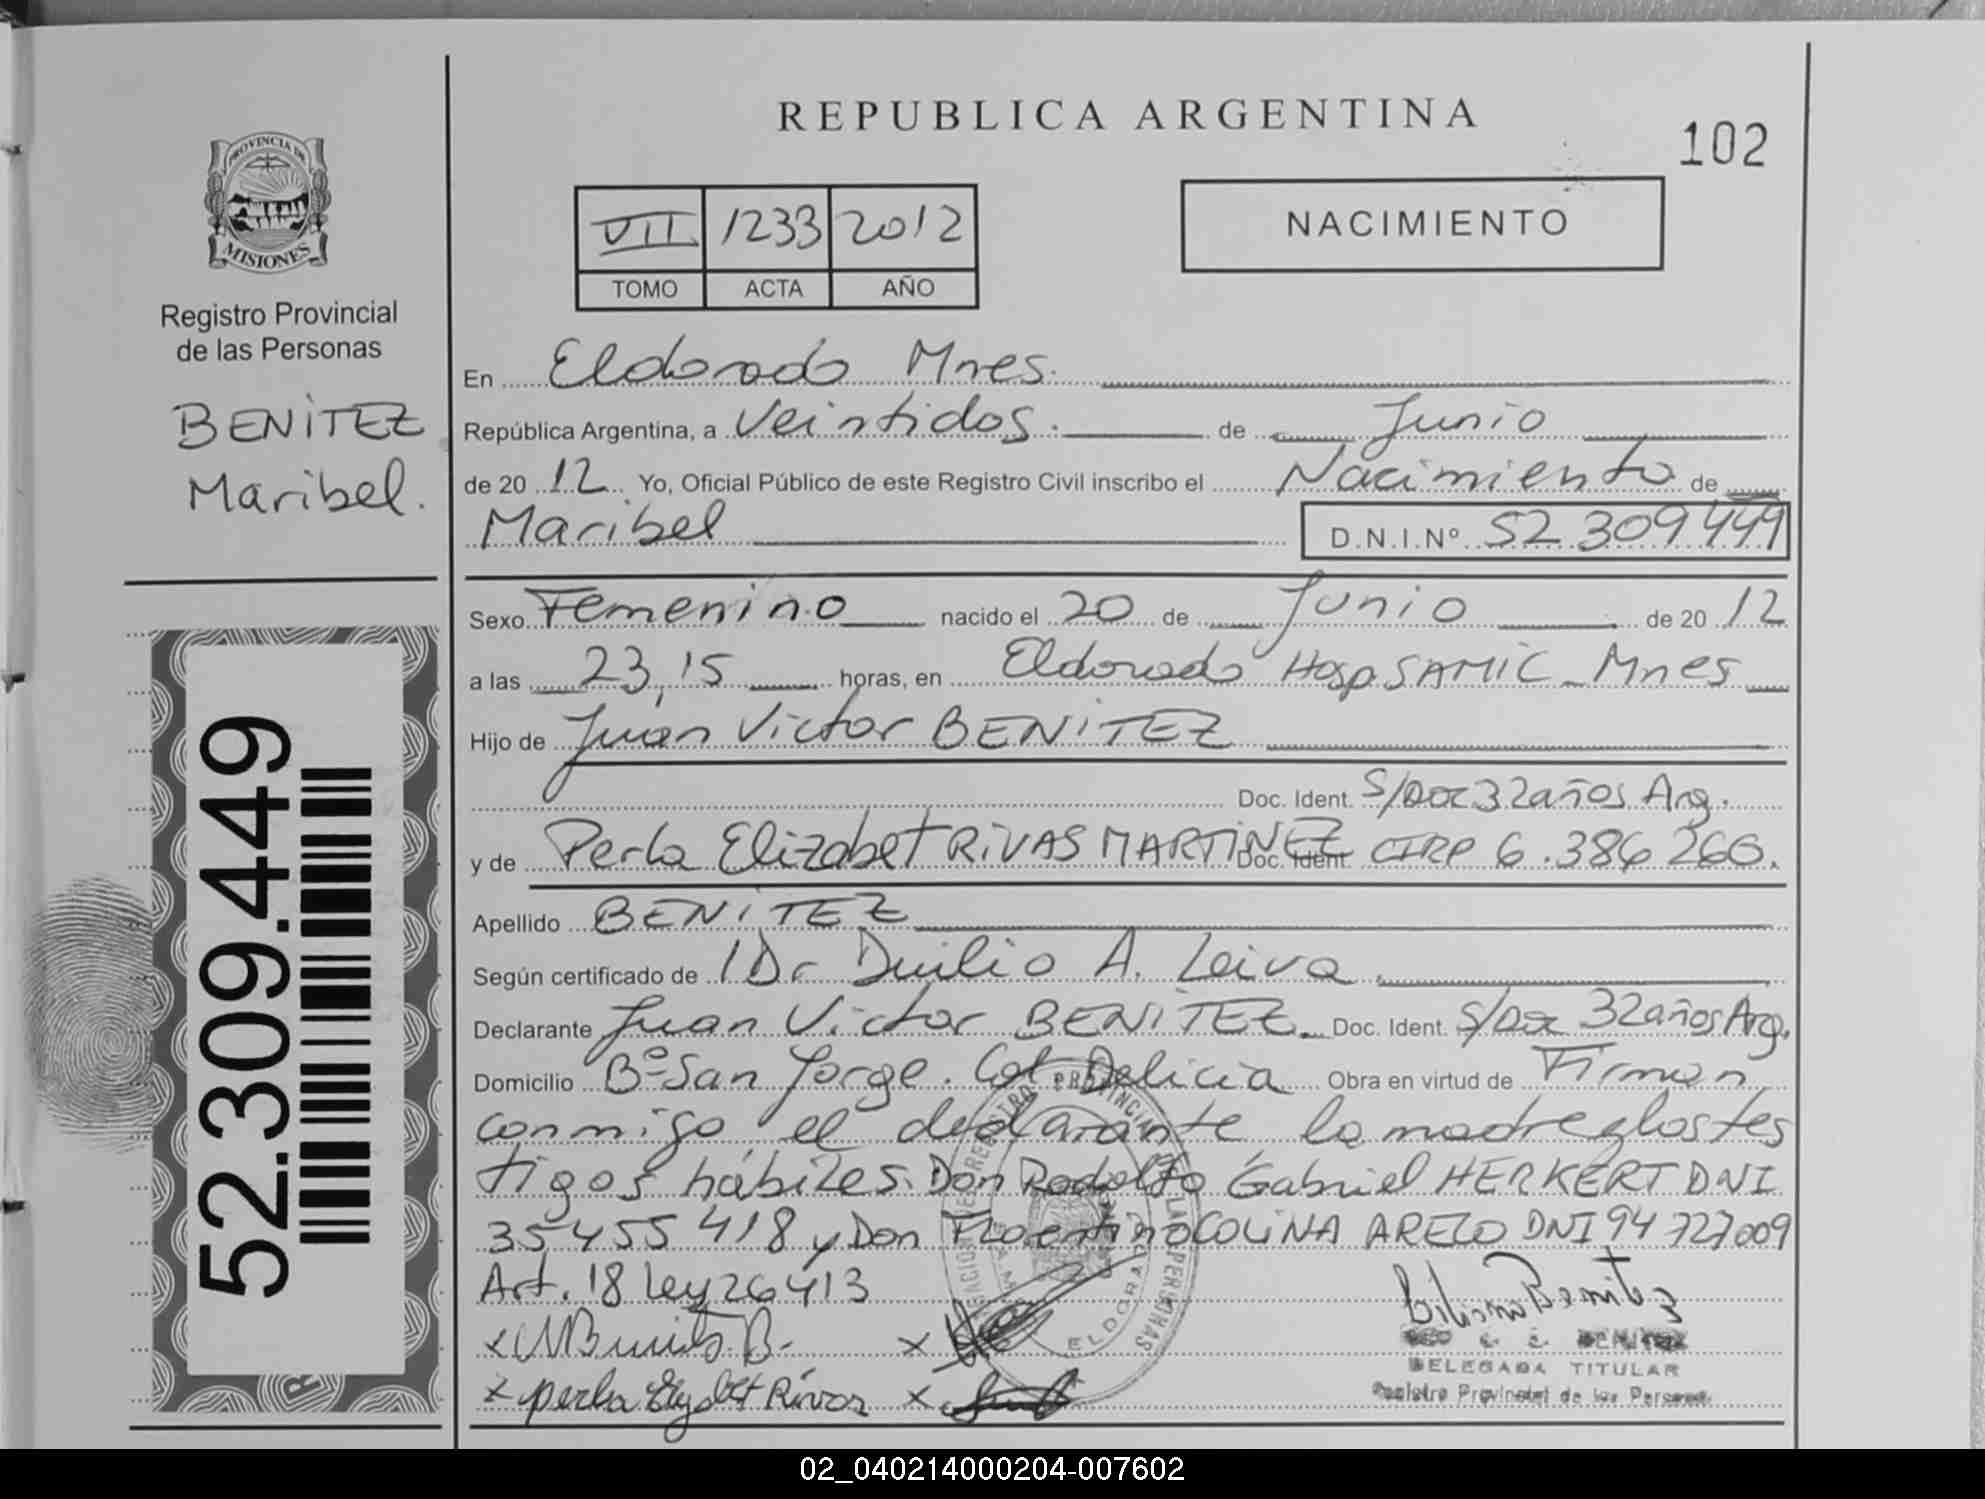 REPUBLICA ARGENTINA
102
PROVINCIA DE
MISIONES
Registro Provincial
de las Personas
BENITEZ
Maribel.
52.309.449
VII 1233 2012
TOMO ACTA AÑO
NACIMIENTO
En Eldorado Mnes.
República Argentina, a Veintidos. de Junio
de 20 12 Yo, Oficial Público de este Registro Civil inscribo el Nacimiento de
Maribel D.N.I.Nº 52 309 449
Sexo Femenino nacido el 20 de Junio de 20 12
a las 23,15 horas, en Eldorado Hosp SAMIC - Mnes
Hijo de Juan Victor BENITEZ
Doc. Ident. S/Doc 32 años Arg.
y de Perla Elizabet RIVAS MARTINEZ Doc. Ident. CIRP 6.386 260.
Apellido BENITEZ
Según certificado de Dr Duilio A. Leiva
Declarante Juan Victor BENITEZ. Doc. Ident. S/Doc 32 años Arg.
Domicilio Bº San Jorge. Col Delicia Obra en virtud de Firman
conmigo el declarante la madre y los tes
tigos hábiles. Don Rodolfo Gabriel HERKERT DNI
35 455 418 y Don Florentino COLINA ARECO DNI 94 727 009
Art. 18 ley 26 413
x
x perla Elyzabet Rivas x
ELDORADO
BENITEZ
DELEGADA TITULAR
Registro Provincial de las Personas
02_040214000204-007602